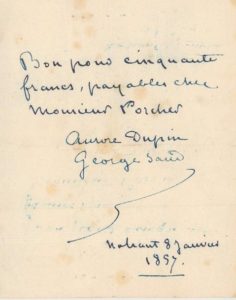 Bon pour cinquante
francs, payables chez
Monsieur Porcher
Aurore Dupin
George Sand
Nohant 8 Janvier
1857.